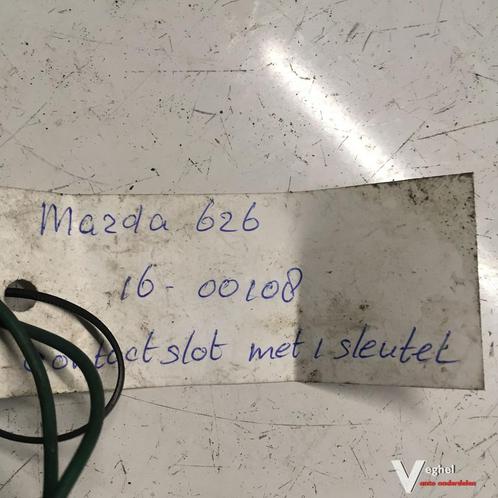 Mazda 626
16-00108
contactslot met 1 sleutel
Veghel
auto onderdelen